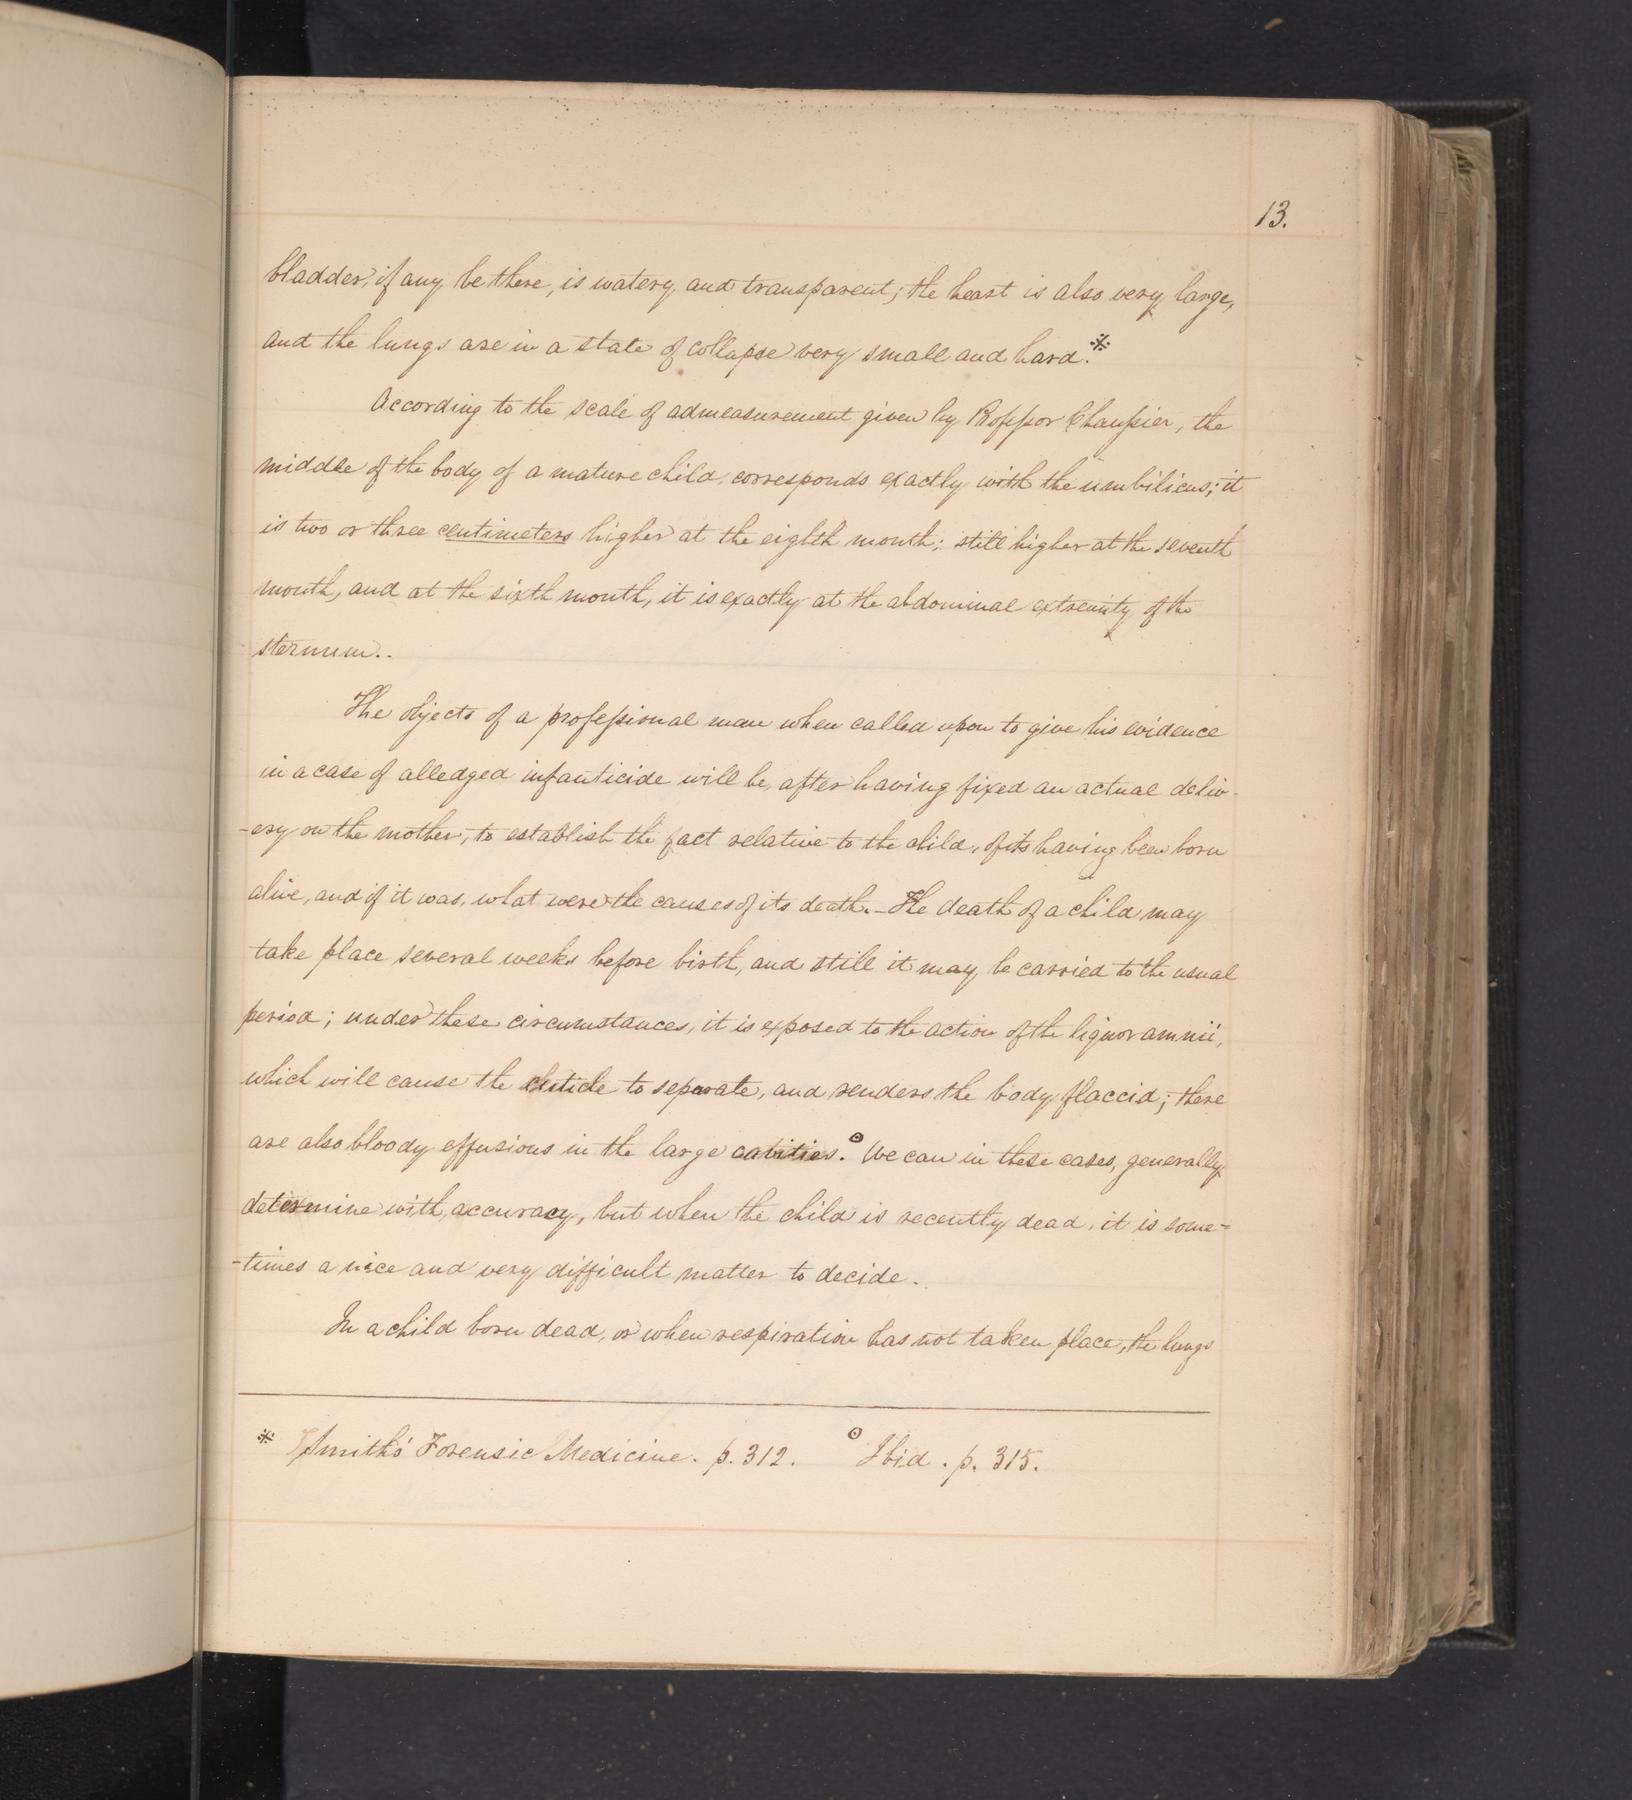 13.
bladder, if any be there, is watery and transparent; the heart is also very large,
and the lungs are in a state of collapse very small and hard.*
According to the scale of admeasurement given by Professor Chaussier, the
middle of the body of a mature child, corresponds exactly with the umbilicus; it
is two or three centimeters higher at the eighth month; still higher at the seventh
month, and at the sixth month, it is exactly at the abdominal extremity of the
sternum..
The objects of a professional man when called upon to give his evidence
in a case of alledged infanticide will be, after having fixed an actual deliv-
-ery on the mother, to establish the fact relative to the child, of its having been born
alive, and if it was, what were the causes of its death. - The death of a child may
take place several weeks before birth, and still it may be carried to the usual
period; under these circumstances, it is exposed to the action of the liquor amnii,
which will cause the cuticle to separate, and renders the body flaccid; there
are also bloody effusions in the large cavities.° We can in these cases, generally
determine with accuracy, but when the child is recently dead, it is some=
-times a nice and very difficult matter to decide.
In a child born dead, or when respiration has not taken place, the lungs
* Smith's Forensic Medicine. p. 312. ° Ibid. p. 315.